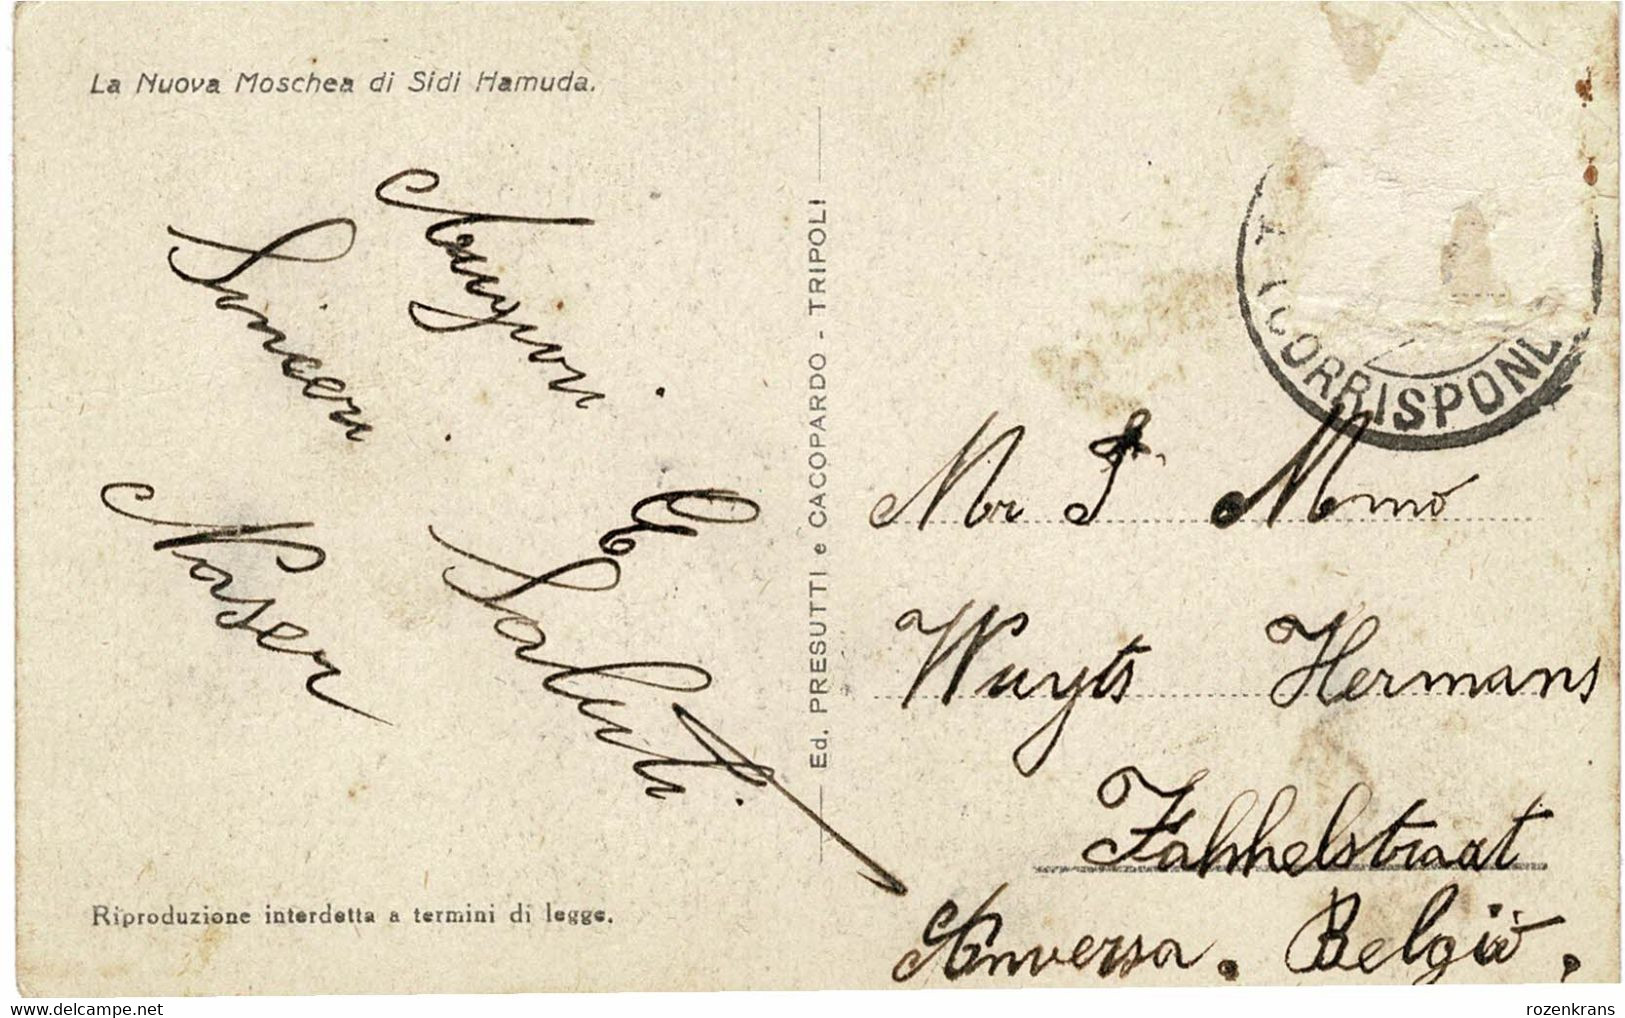 La Nuova Moschea di Sidi Hamuda.
Auguri
Sinceri
E Saluti
Naser
Riproduzione interdetta a termini di legge.
Ed. PRESUTTI e CACOPARDO - TRIPOLI
(CORRISPOND
Mr
Wuyts Hermans
Anversa. Belgio.
rozenkrans